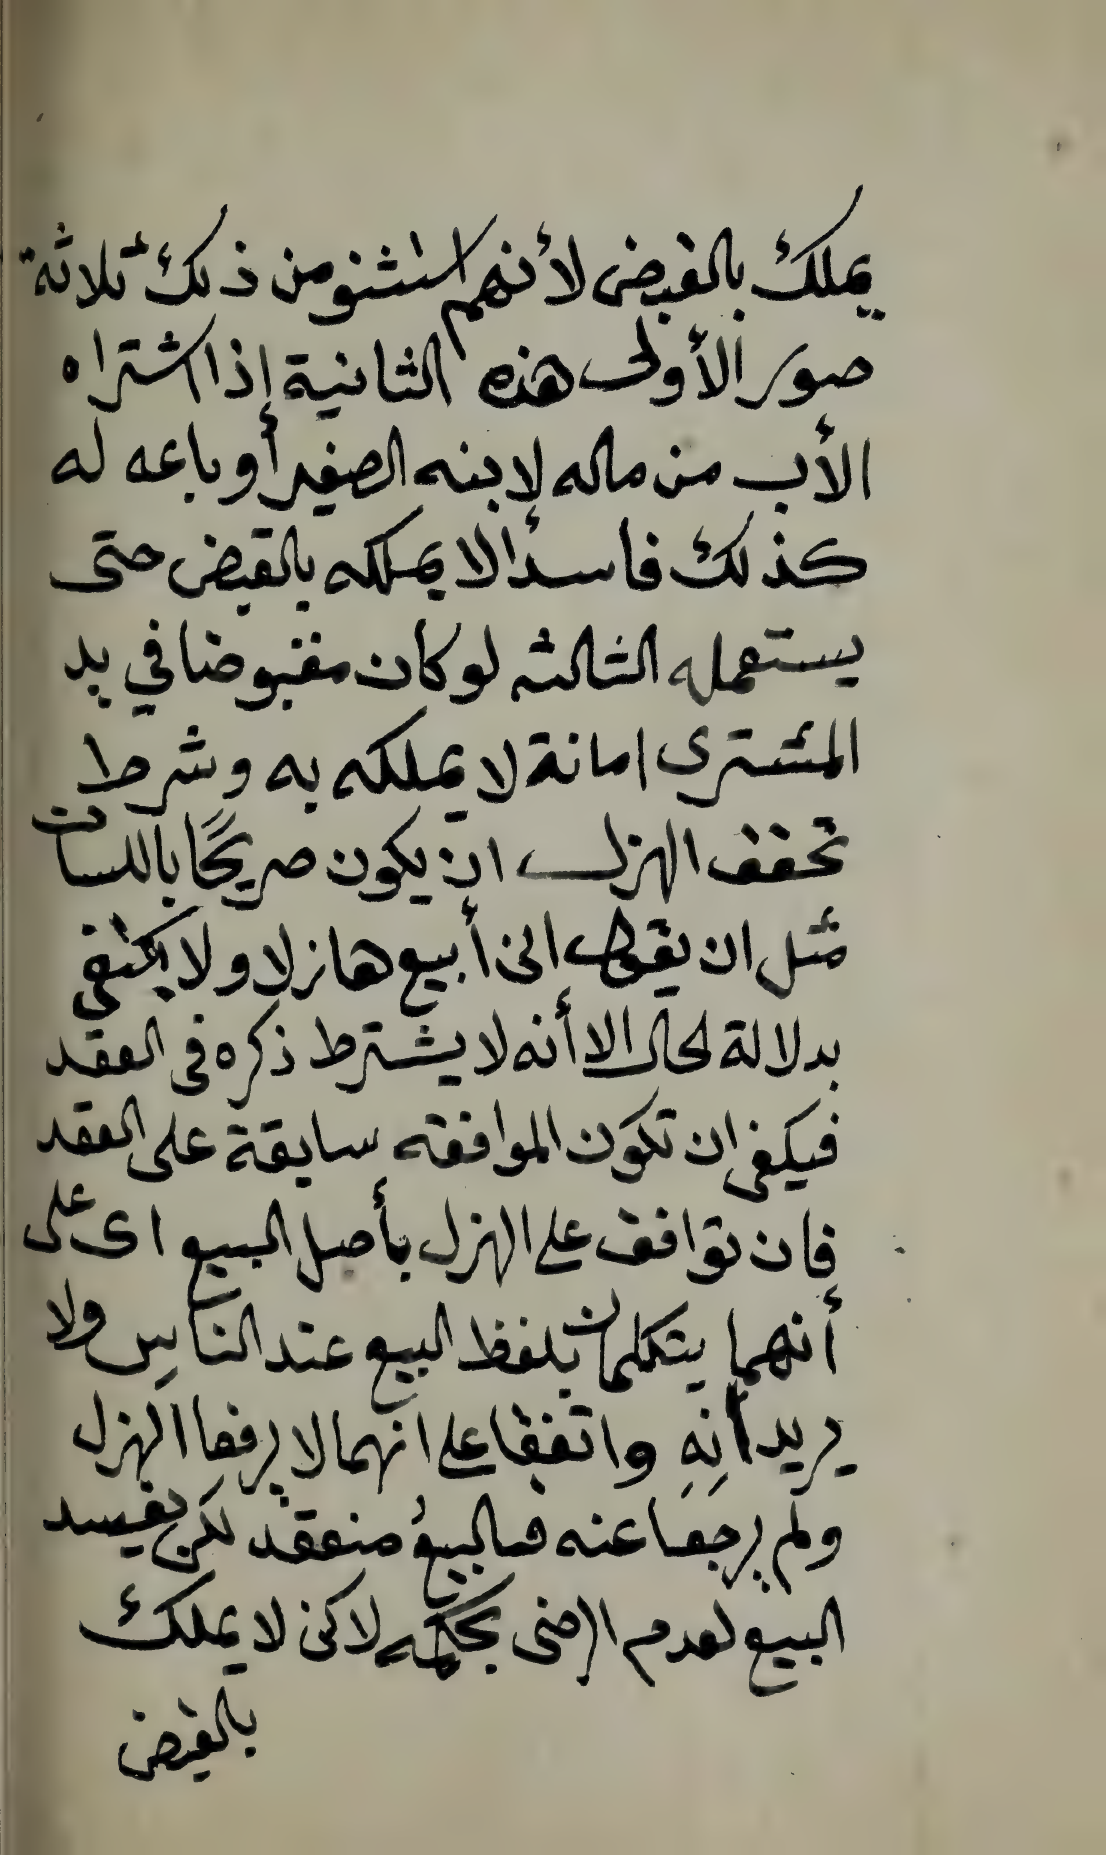 يملك بالقبض لأنهم استثنو من ذلك ثلاثة
صور الأولى هذه الثانية إذا اشتراه
الأب من ماله لابنه الصغير أو باعه له
كذلك فاسدا لا يملكه بالقبض حتى
يستعمله الثالثه لو كان مقبوضا في يد
المشترى امانة لا يملكه به وشرط
تحقق الهزل ان يكون صريحًا باللسان
مثل ان يقول انى أبيع هازلا ولا يكتفي
بدلالة الحال الا أنه لا يشترط ذكره فى العقد
فيكفى ان تكون الموافقه سابقة على العقد
فان توافق على الهزل بأصل البيع اى على
أنهما يتكلمان بلفظ البيع عند الناس ولا
يريدانه واتفقا على انهما لا يرفعا الهزل
ولم يرجعا عنه فالبيع منعقد لكن يفسد
البيع لعدم الرضى بحكمه لاكن لا يملك
بالقبض